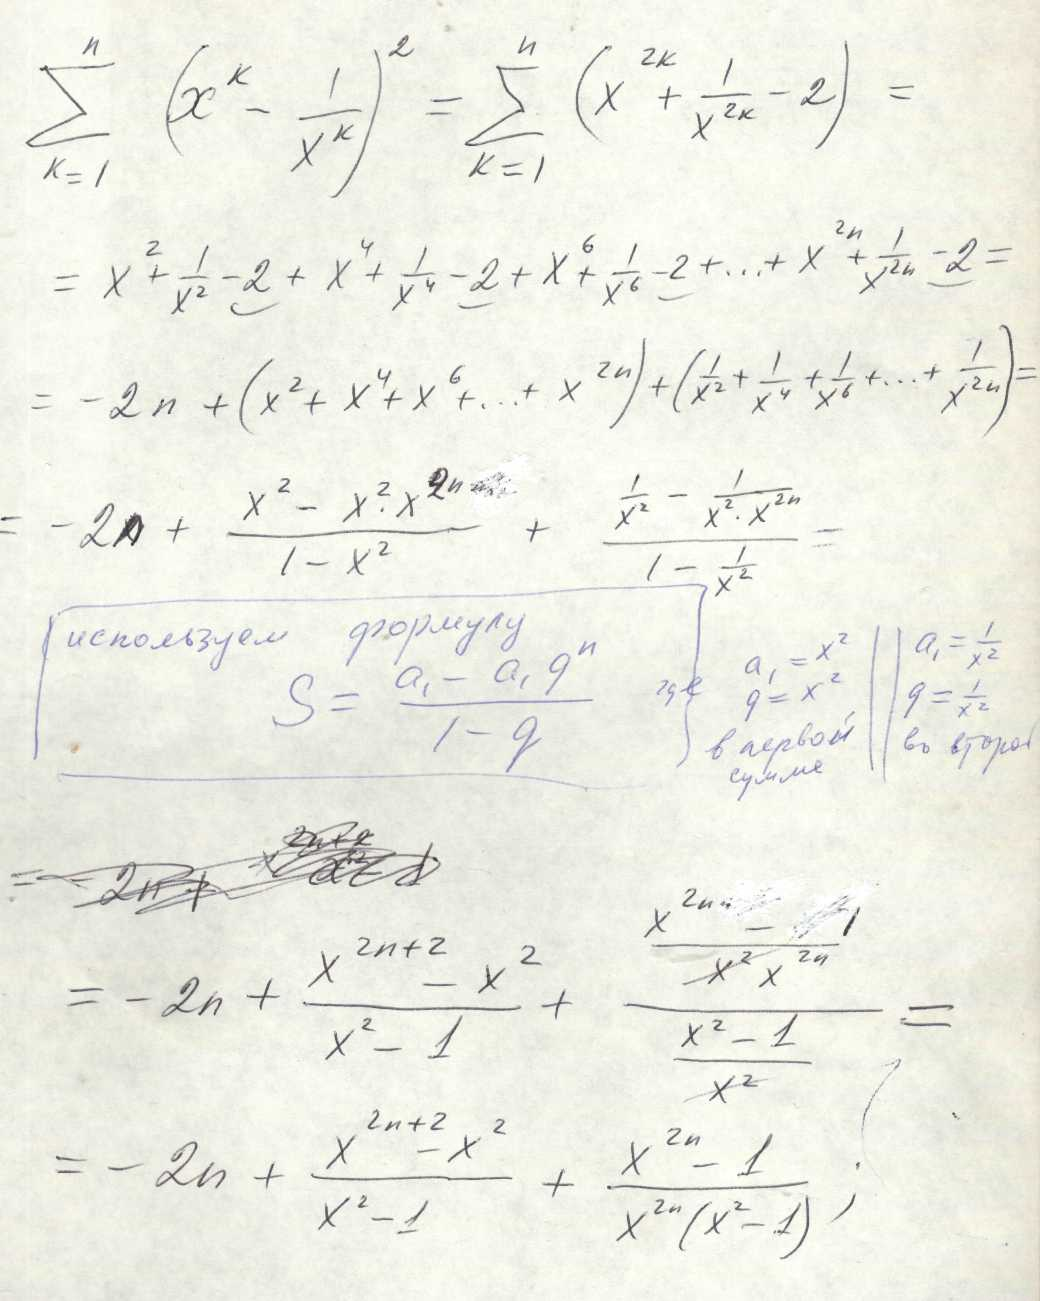 ∑_{k=1}^{n} (x^k − 1/x^k)^2 = ∑_{k=1}^{n} (x^{2k} + 1/x^{2k} − 2) =
= x^2 + 1/x^2 − 2 + x^4 + 1/x^4 − 2 + x^6 + 1/x^6 − 2 + ... + x^{2n} + 1/x^{2n} − 2 =
= −2n + (x^2 + x^4 + x^6 + ... + x^{2n}) + (1/x^2 + 1/x^4 + 1/x^6 + ... + 1/x^{2n}) =
= −2n + (x^2 − x^2·x^{2n})/(1 − x^2) + (1/x^2 − 1/(x^2·x^{2n}))/(1 − 1/x^2) =
используем формулу
S = (a₁ − a₁q^n)/(1 − q)
где
a₁ = x^2
q = x^2
в первой
сумме
a₁ = 1/x^2
q = 1/x^2
во второй
= −2n + (x^{2n+2} − x^2)/(x^2 − 1) + ((x^{2n} − 1)/(x^2 x^{2n}))/((x^2 − 1)/x^2) =
= −2n + (x^{2n+2} − x^2)/(x^2 − 1) + (x^{2n} − 1)/(x^{2n}(x^2 − 1));